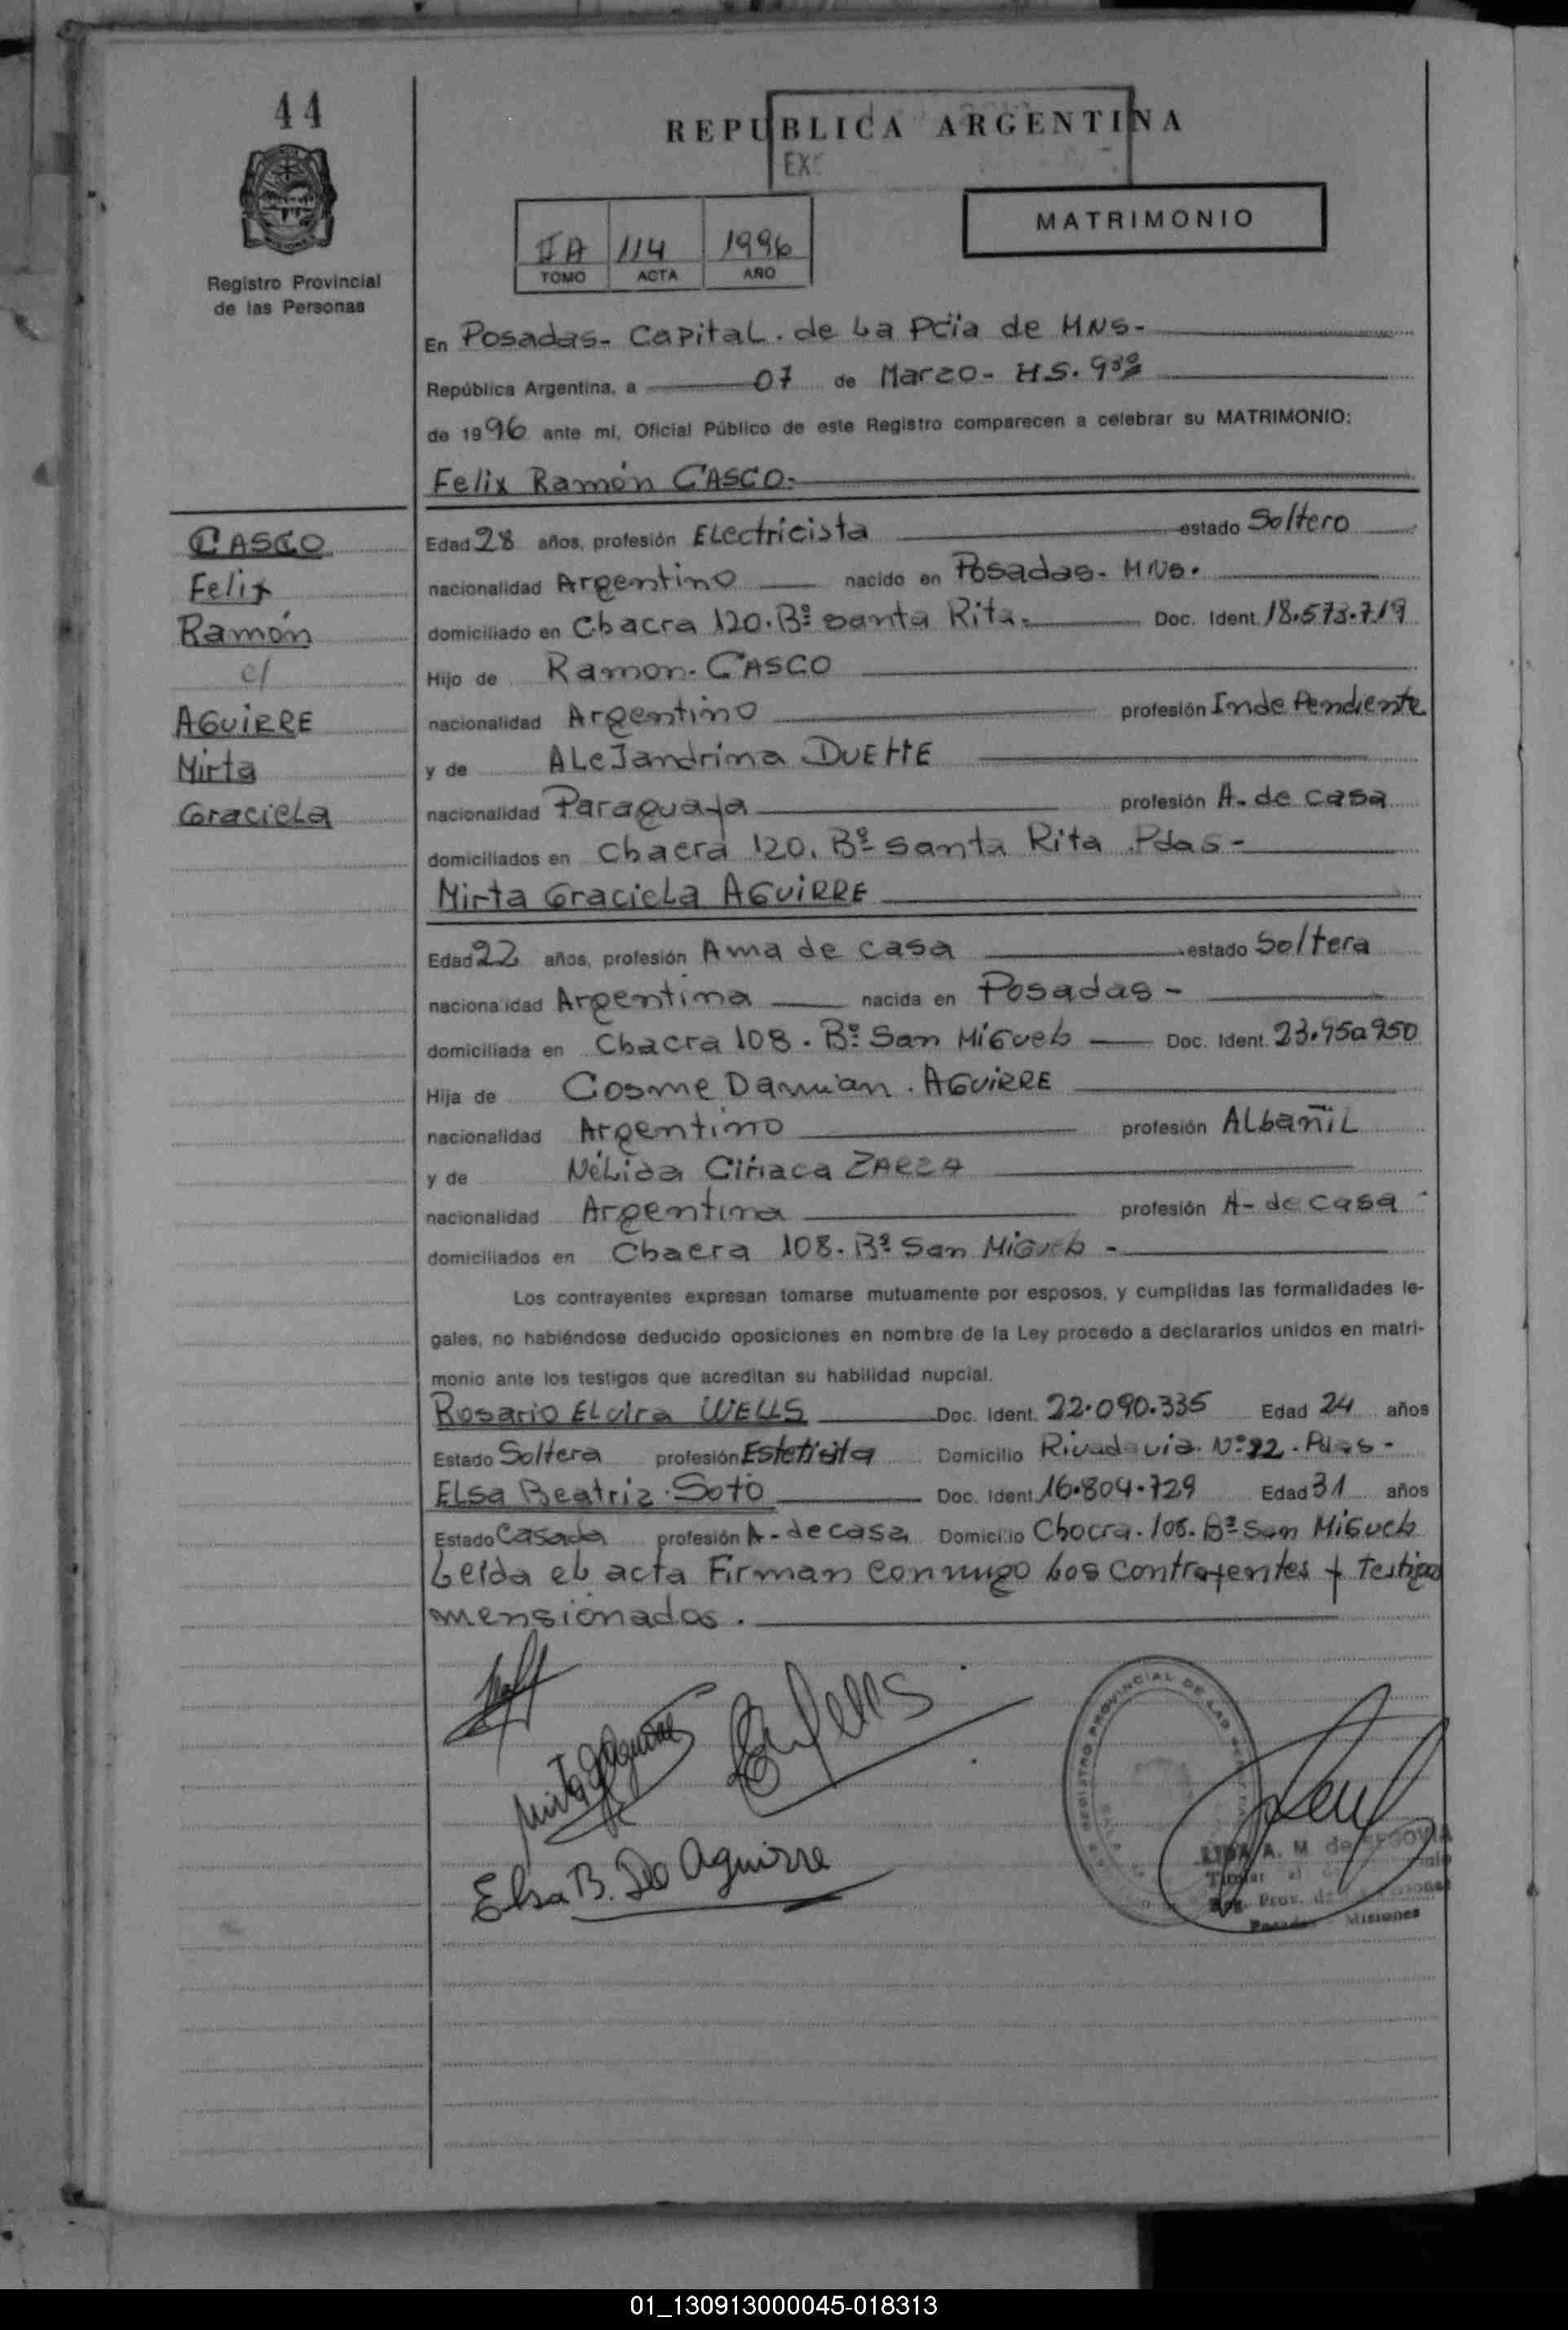 44
REPUBLICA ARGENTINA
EX
MATRIMONIO
II A 114 1996
TOMO ACTA AÑO
Registro Provincial
de las Personas
En Posadas- Capital. de La Pcia de MNS-
República Argentina, a 07 de Marzo- HS. 9³⁰
de 1996 ante mi, Oficial Público de este Registro comparecen a celebrar su MATRIMONIO:
Felix Ramón CASCO-
CASCO
Felix
Ramón
c/
AGUIRRE
Mirta
Graciela
Edad 28 años, profesión Electricista estado Soltero
nacionalidad Argentino nacido en Posadas- MNs.
domiciliado en Chacra 120. Bº santa Rita. Doc. Ident. 18.573.719
Hijo de Ramon. CASCO
nacionalidad Argentino profesión Independiente
y de Alejandrina DUETTE
nacionalidad Paraguaya profesión A- de casa
domiciliados en Chacra 120. Bº santa Rita Pdas-
Mirta Graciela AGUIRRE
Edad 22 años, profesión Ama de casa estado Soltera
nacionalidad Argentina nacida en Posadas-
domiciliada en Chacra 108. Bº San Miguel Doc. Ident. 23.950950
Hija de Cosme Damian. AGUIRRE
nacionalidad Argentino profesión Albañil
y de Nélida Ciriaca ZARZA
nacionalidad Argentina profesión A- de casa
domiciliados en Chacra 108. Bº San Miguel -
Los contrayentes expresan tomarse mutuamente por esposos, y cumplidas las formalidades le-
gales, no habiéndose deducido oposiciones en nombre de la Ley procedo a declararlos unidos en matri-
monio ante los testigos que acreditan su habilidad nupcial.
Rosario Elvira WELLS Doc. Ident. 22.090.335 Edad 24 años
Estado Soltera profesión Estetisita Domicilio Rivadavia. Nº 22. Pdas-
Elsa Beatriz Soto Doc. Ident. 16.804.729 Edad 31 años
Estado Casada profesión A- de casa Domicilio Chacra. 108. Bº San Miguel
Leida el acta Firman conmigo los contrayentes y testigos
mensionados.
Mirta G Aguirre
Wells
Elsa B. De Aguirre
REGISTRO PROVINCIAL DE LAS
A. M. de SEGOVIA
Titular
Reg. Prov. de las Personas
Posadas - Misiones
01_130913000045-018313